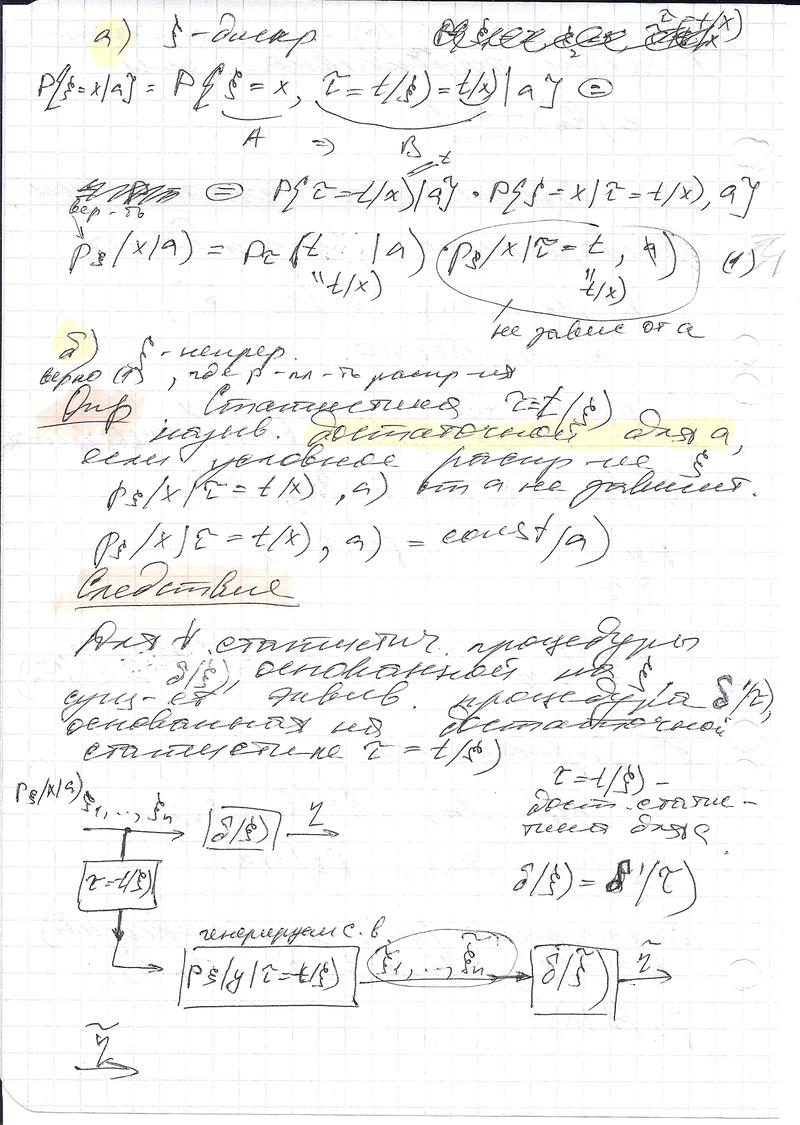 а) ξ-дискр.
P{ξ=x|a} = P{ξ=x, τ=t(ξ)=t(x)|a} =
A ⇒ B
= P{τ=t(x)|a} · P{ξ=x|τ=t(x), a}
вер-ть
pξ(x|a) = pτ(t |a) · pξ(x|τ=t, a) (1)
"t(x) "t(x)
не завис от a
б) ξ-непрер.
верно (1), где p-пл-ть распр-ия
Опр Статистика τ=t(ξ)
назыв. достаточной для a,
если условное распр-ие ξ
pξ(x|τ=t(x), a) от a не зависит.
pξ(x|τ=t(x), a) = const(a)
Следствие
Для ∀ статистич. процедуры
δ(ξ), основанной на ξ
сущ-ет эквив. процедура δ'(τ),
основанная на достаточной
статистике τ=t(ξ)
τ=t(ξ) –
дост. статис-
тика для a
pξ(x|a) ξ1,...,ξn δ(ξ) η
τ=t(ξ)
δ(ξ) = δ'(τ)
генерируем с.в
pξ(y|τ=t(ξ)) ξ̃1,...,ξ̃n δ(ξ̃) η̃
η̃